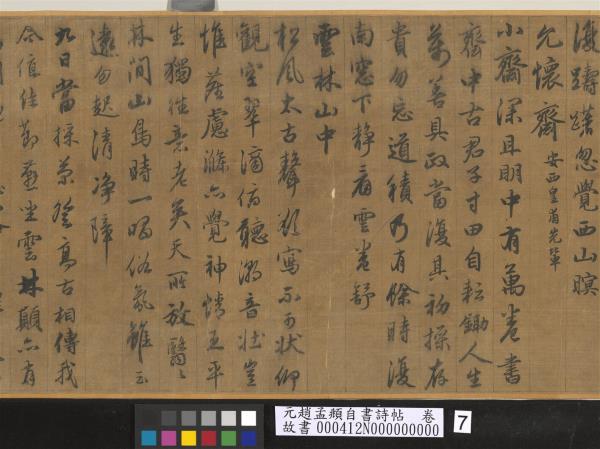 復躊躇忽覺西山暝
允懷齋 安西皇甫先輩
小齋深且明中有萬卷書
齋中古君子寸田自耘鋤人生
萬善具政當復其初操存
貴勿忘道積乃有餘時復
南窓下静看雲卷舒
雲林山中
松風太古聲欲寫不可状仰
觀空翠滴俯聽潮音壮豈
惟塵慮滌亦覺神情王平
生獨往意老矣天所放翳〻
林間山鳥時一唱俗氛雖云
遠勿起清净障
九日當採菊登高古相傳我
今值佳節宴坐雲林顛亦有
元趙孟頫自書詩帖 卷
故書 000412N000000000
7